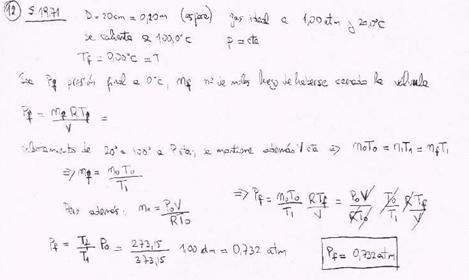 12) S.18.71 D=20cm = 0,20m (esfera) gas ideal a 1,00 atm y 20,0ºC
se calienta a 100,0ºC p = cte
Tf = 0,00ºC = T
Sea Pf presión final a 0ºC, nf nº de moles luego de haberse cerrado la válvula
Pf = nf R Tf / V =
calentamiento de 20º a 100º a P cte, se mantiene además V cte ⇒ n0T0 = n1T1 = nfT1
⇒ nf = n0T0 / T1
Pero además: n0 = P0V / RT0
⇒ Pf = n0T0 / T1 RTf / V = P0V / RT0 T0 / T1 RTf / V
Pf = Tf / T1 P0 = 273,15 / 373,15 1,00 atm = 0,732 atm
Pf = 0,732 atm